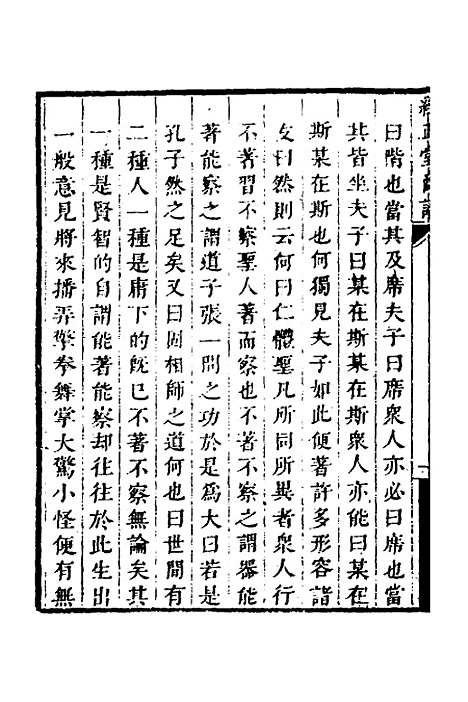 曰階也當其及席夫子曰席衆人亦必曰席也當
其皆坐夫子曰某在斯某在斯衆人亦能曰某在
斯某在斯也何獨見夫子如此便著許多形容諸
友曰然則云何曰仁體聖凡所同所異者衆人行
不著習不察聖人著而察也不著不察之謂器能
著能察之謂道子張一問之功於是爲大曰若是
孔子然之足矣又曰固相師之道何也曰世間有
二種人一種是庸下的旣已不著不察無論矣其
一種是賢智的自謂能著能察却往往於此生出
一般意見將來播弄擎拳舞掌大驚小怪便有無